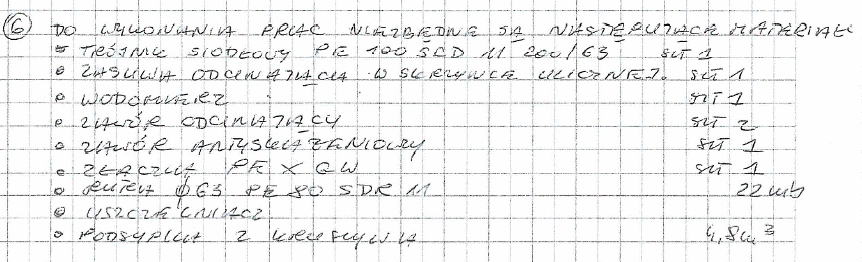 ⑥ DO WYKONANIA PRAC NIEZBĘDNE SĄ NASTĘPUJĄCE MATERIAŁY
• TRÓJNIK SIODŁOWY PE 100 SCD 11 200/63 SZT 1
• ZASUWA ODCINAJĄCA W SKRZYNCE ULICZNEJ. SZT 1
• WODOMIERZ SZT 1
• ZAWÓR ODCINAJĄCY SZT 2
• ZAWÓR ANTYSKAŻENIOWY SZT 1
• ZŁĄCZKA PE X GW SZT 1
• RURA ϕ63 PE 80 SDR 11 22 mb
• USZCZELNIACZ
• PODSYPKA Z KRUSZYWA 4,8 m³